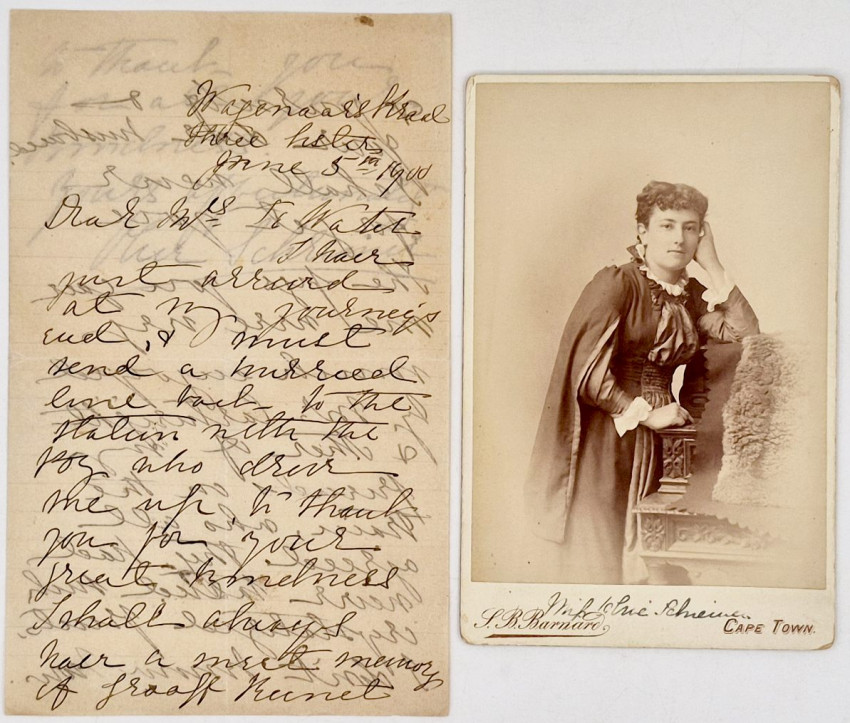 Wagenaars Kraal
Three Sisters
June 5th 1900
Dear Mrs te Water
I have
just arrived
at my journeys
end, & must
send a hurried
line back to the
station with the
boy who drove
me up, to thank
you for your
great kindness
I shall always
have a most memory
of Graaff Reinet
Miss Olive Schreiner
S.B. Barnard
CAPE TOWN.